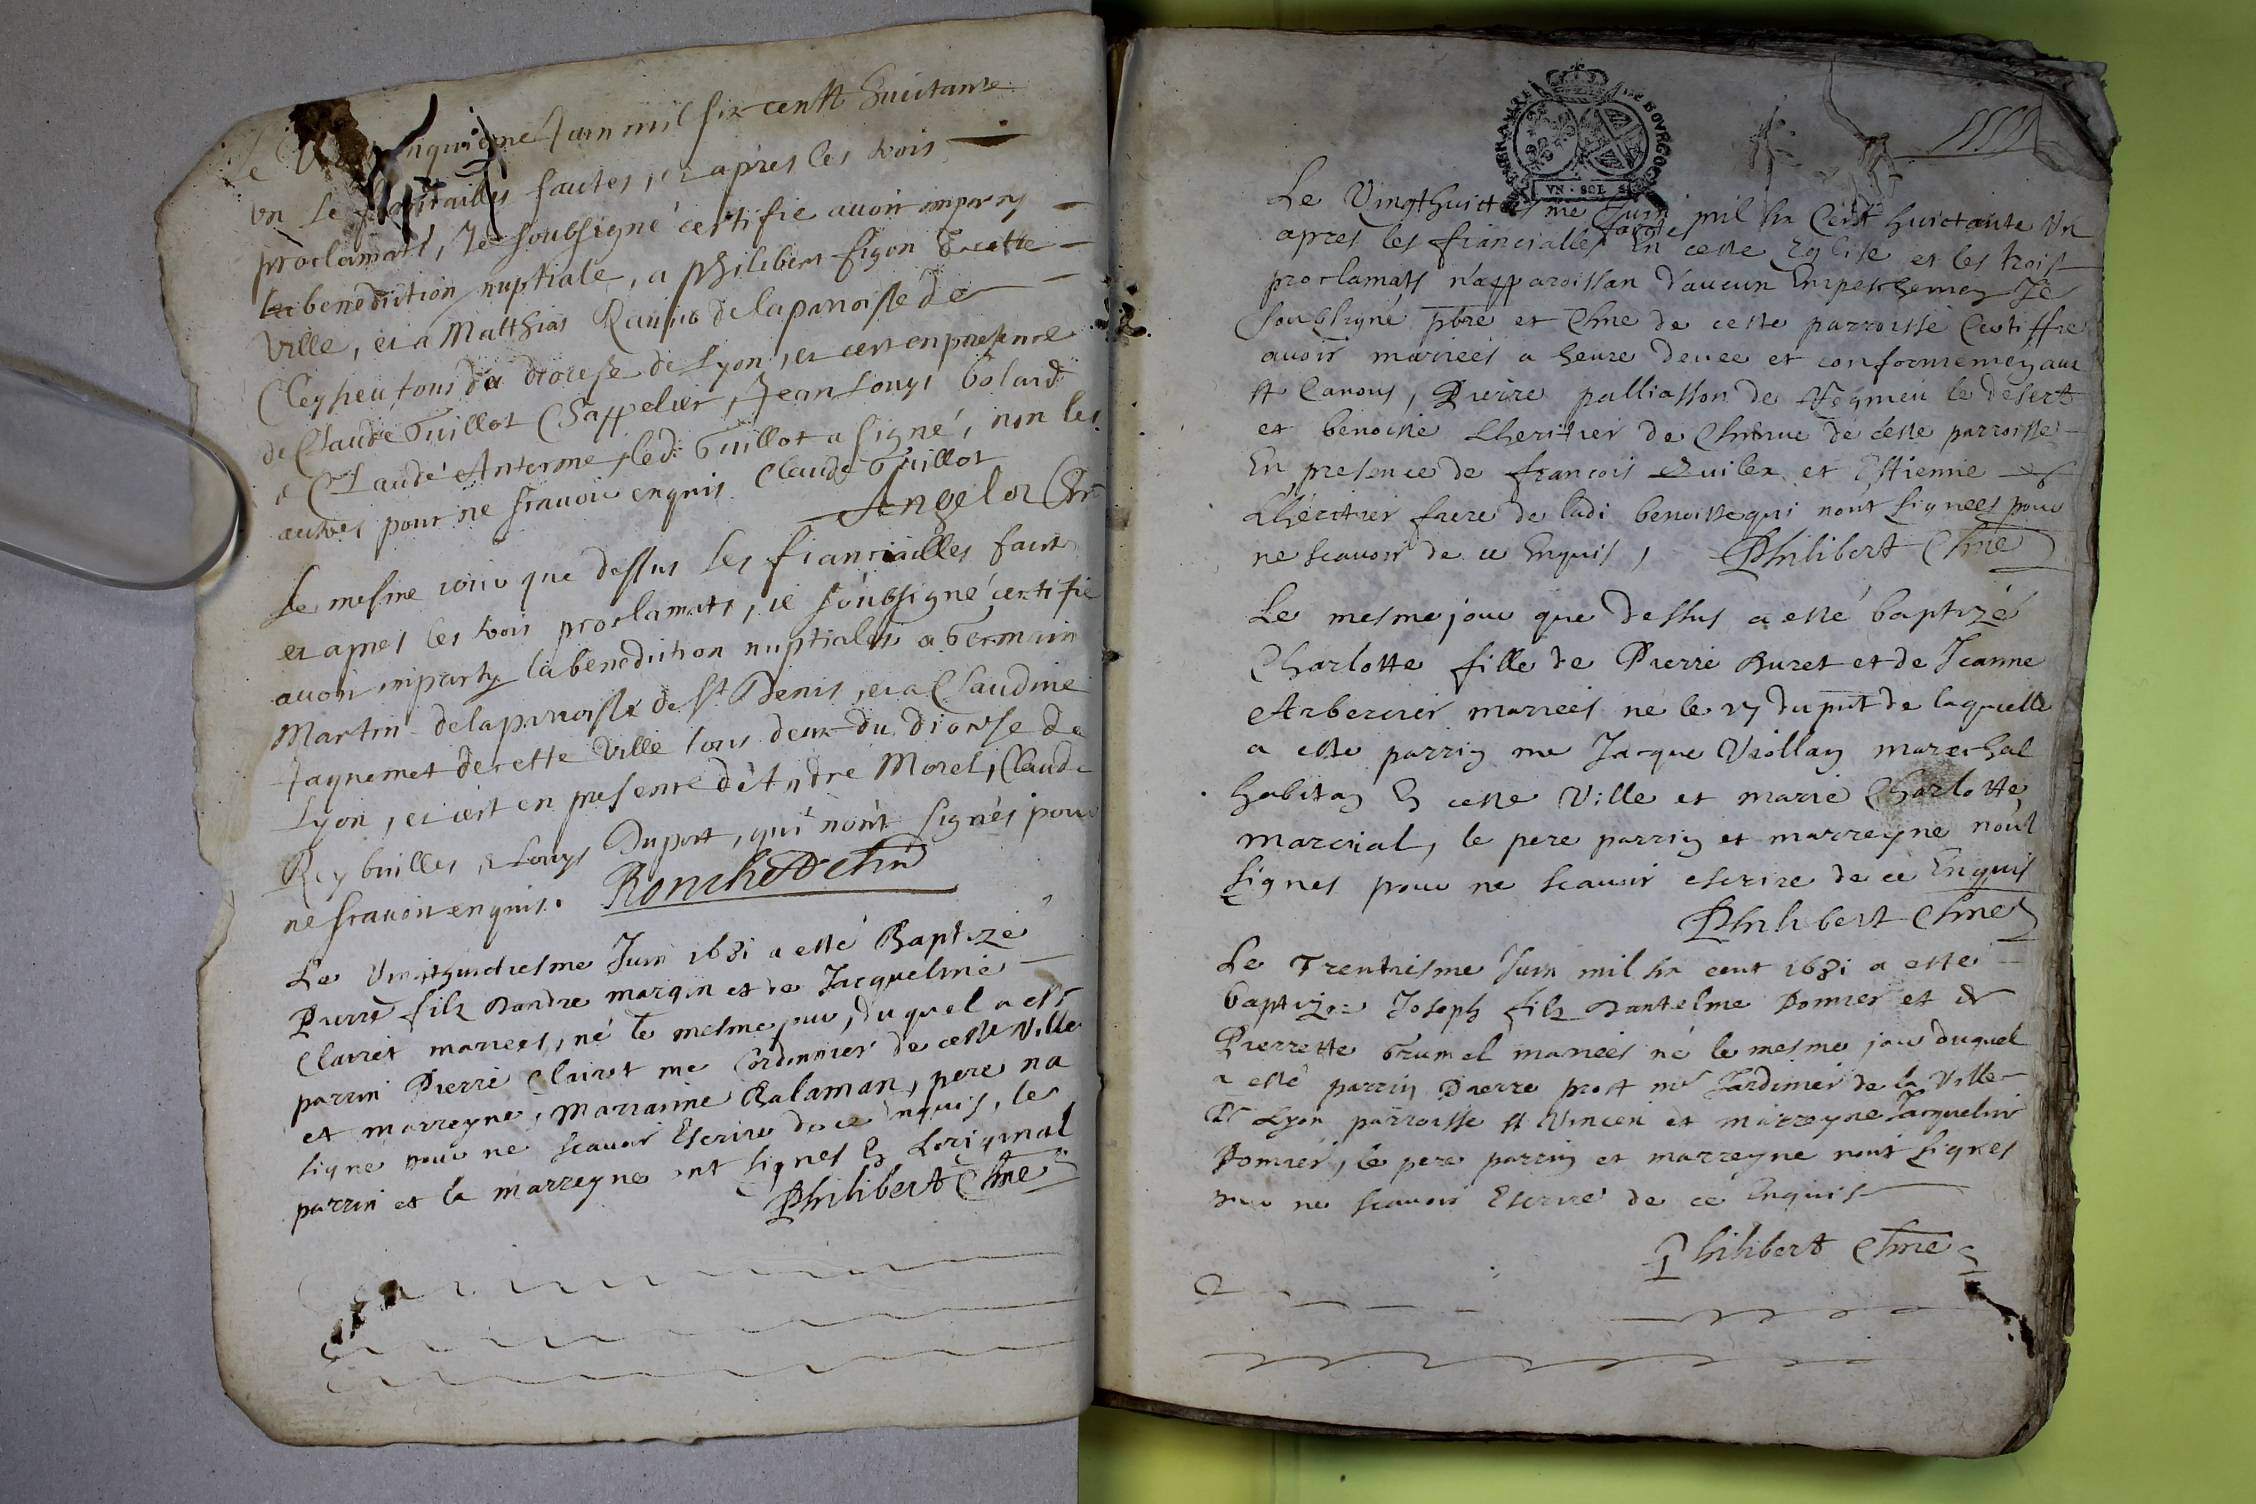 Juin mil six centt huictante
un le fiançailles faites, et apres les trois
proclamatt, Je soubsigné certifie avoir imparty
la benediction nuptiale, a philibert figon de cette
ville, et a Matthias de la parroisse de
tous du diocese de Lyon, et cest en presence
de Claude Guillot Chappelier, Jean Louys Golard
& Claude Antoine, led. Guillot a signé, non les
autres pour ne scavoir enquis. Claude Guillot
Angelot
Le mesme jour que dessus les fiançailles faict
et apres les trois proclamatt, je soubsigné certifie
avoir imparty la benediction nuptiale a Germain
Martin de la parroisse de St Denis, et a Claudine
Jaquemet de cette ville tous deux du diocese de
Lyon, et cest en presence d'André Morel, Claude
& Louys Duport, qui n'ont signés pour
ne scavoir enquis.
Le Juin 1681 a esté Baptizé
Pierre filz dandre margin et de Jacqueline
Clairet mariees, né le mesme jour, duquel a esté
parrin Pierre Clairet me Cordonnier de ceste ville
et marreyne, Marianne Balaman, pere na
signé pour ne scavoir Escrire de ce enquis, les
parrin et la marreyne ont signes En Loriginal
Philibert Chne
GENERALITE DE BOVRGOGNE
VN · SOL
Le Vingthuictiesme Juin mil six Cent huictante Un
apres les fiancialles faictes En ceste Eglise et les trois
proclamatt n'apparoissan d'aucun Empeschemen Je
soubsigné pbre et Chne de ceste parroisse Certiffie
avoir mariees a heure deuee et conformemen aux
st Canons, Pierre palliasson de le desert
et benoiste Lheritier de de ceste parroisse
En presence de francois et Estienne
Lhéritier frere de ladi benoiste qui nont signees pour
ne scavoir de ce Enquis, Philibert Chne
Le mesme jour que dessus a esté baptizé
Charlotte fille de Pierre Buret et de Jeanne
mariees né le 27 du pnt de laquelle
a esté parrin me Jacque Viollay marechal
habitan En ceste Ville et marie Charlotte
marcial, le pere parrin et marreyne nont
signes pour ne scavoir escrire de ce Enquis
Philibert Chne
Le Trentiesme Juin mil six cent 1681 a esté
baptizee Joseph filz Dantelme Pomier et de
Pierrette Brumel mariees né le mesme jour duquel
a esté parrin Pierre prost mr Jardinier de la Ville
De Lyon parroisse st Vincen et marreyne Jacqueline
Pomier, le pere parrin et marreyne nont signes
pour ne scavoir Escrire de ce Enquis
Philibert Chne